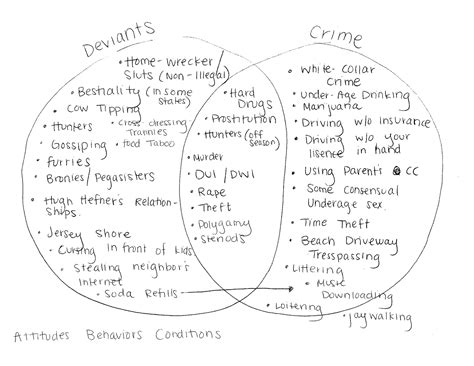 Deviants
Crime
• Home-wrecker
Sluts (Non-Illegal)
• Bestiality (in some
States)
• Cow Tipping
• Hunters
• Cross dressing-
Trannies
• Gossiping
• Food Taboo
• Furries
• Bronies/Pegasisters
• Hugh Hefner's Relation-
ships.
• Jersey Shore
• Cursing in front of kids
• Stealing neighbor's
Internet
• Soda Refills
• Hard
Drugs
• Prostitution
• Hunters (off
Season)
• Murder
• DUI / DWI
• Rape
• Theft
• Polygamy
• Steriods
• White-Collar
Crime
• Under-Age Drinking
• Marijuana
• Driving w/o insurance
• Driving w/o your
lisence in hand
• Using Parent's CC
• Some Consensual
Underage sex.
• Time Theft
• Beach Driveway
Tresspassing
• Littering
• Music
Downloading
• Loitering
• Jaywalking
Attitudes Behaviors Conditions